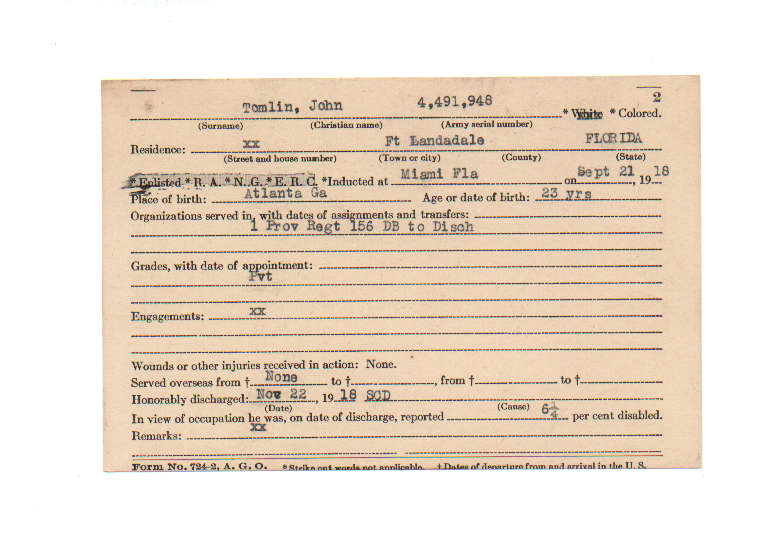 2
Tomlin, John 4,491,948 * White * Colored.
(Surname) (Christian name) (Army serial number)
Residence: xx Ft Landadale FLORIDA
(Street and house number) (Town or city) (County) (State)
* Enlisted * R. A. * N. G. * E. R. C. *Inducted at Miami Fla on Sept 21, 1918
Place of birth: Atlanta Ga Age or date of birth: 23 yrs
Organizations served in, with dates of assignments and transfers:
1 Prov Regt 156 DB to Disch
Grades, with date of appointment:
Pvt
Engagements: xx
Wounds or other injuries received in action: None.
Served overseas from † None to †, from † to †
Honorably discharged: Nov 22, 1918 SCD
(Date) (Cause)
In view of occupation he was, on date of discharge, reported 6¼ per cent disabled.
Remarks: xx
Form No. 724-2, A. G. O. *Strike out words not applicable. †Dates of departure from and arrival in the U. S.